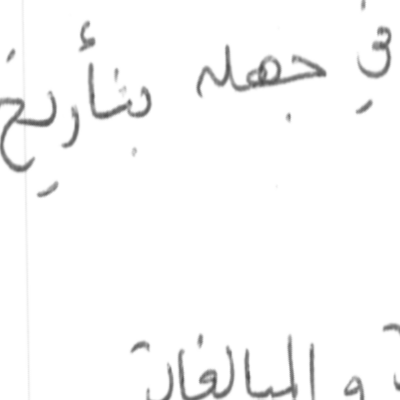 في جهله بتأريخ
و المبالغات